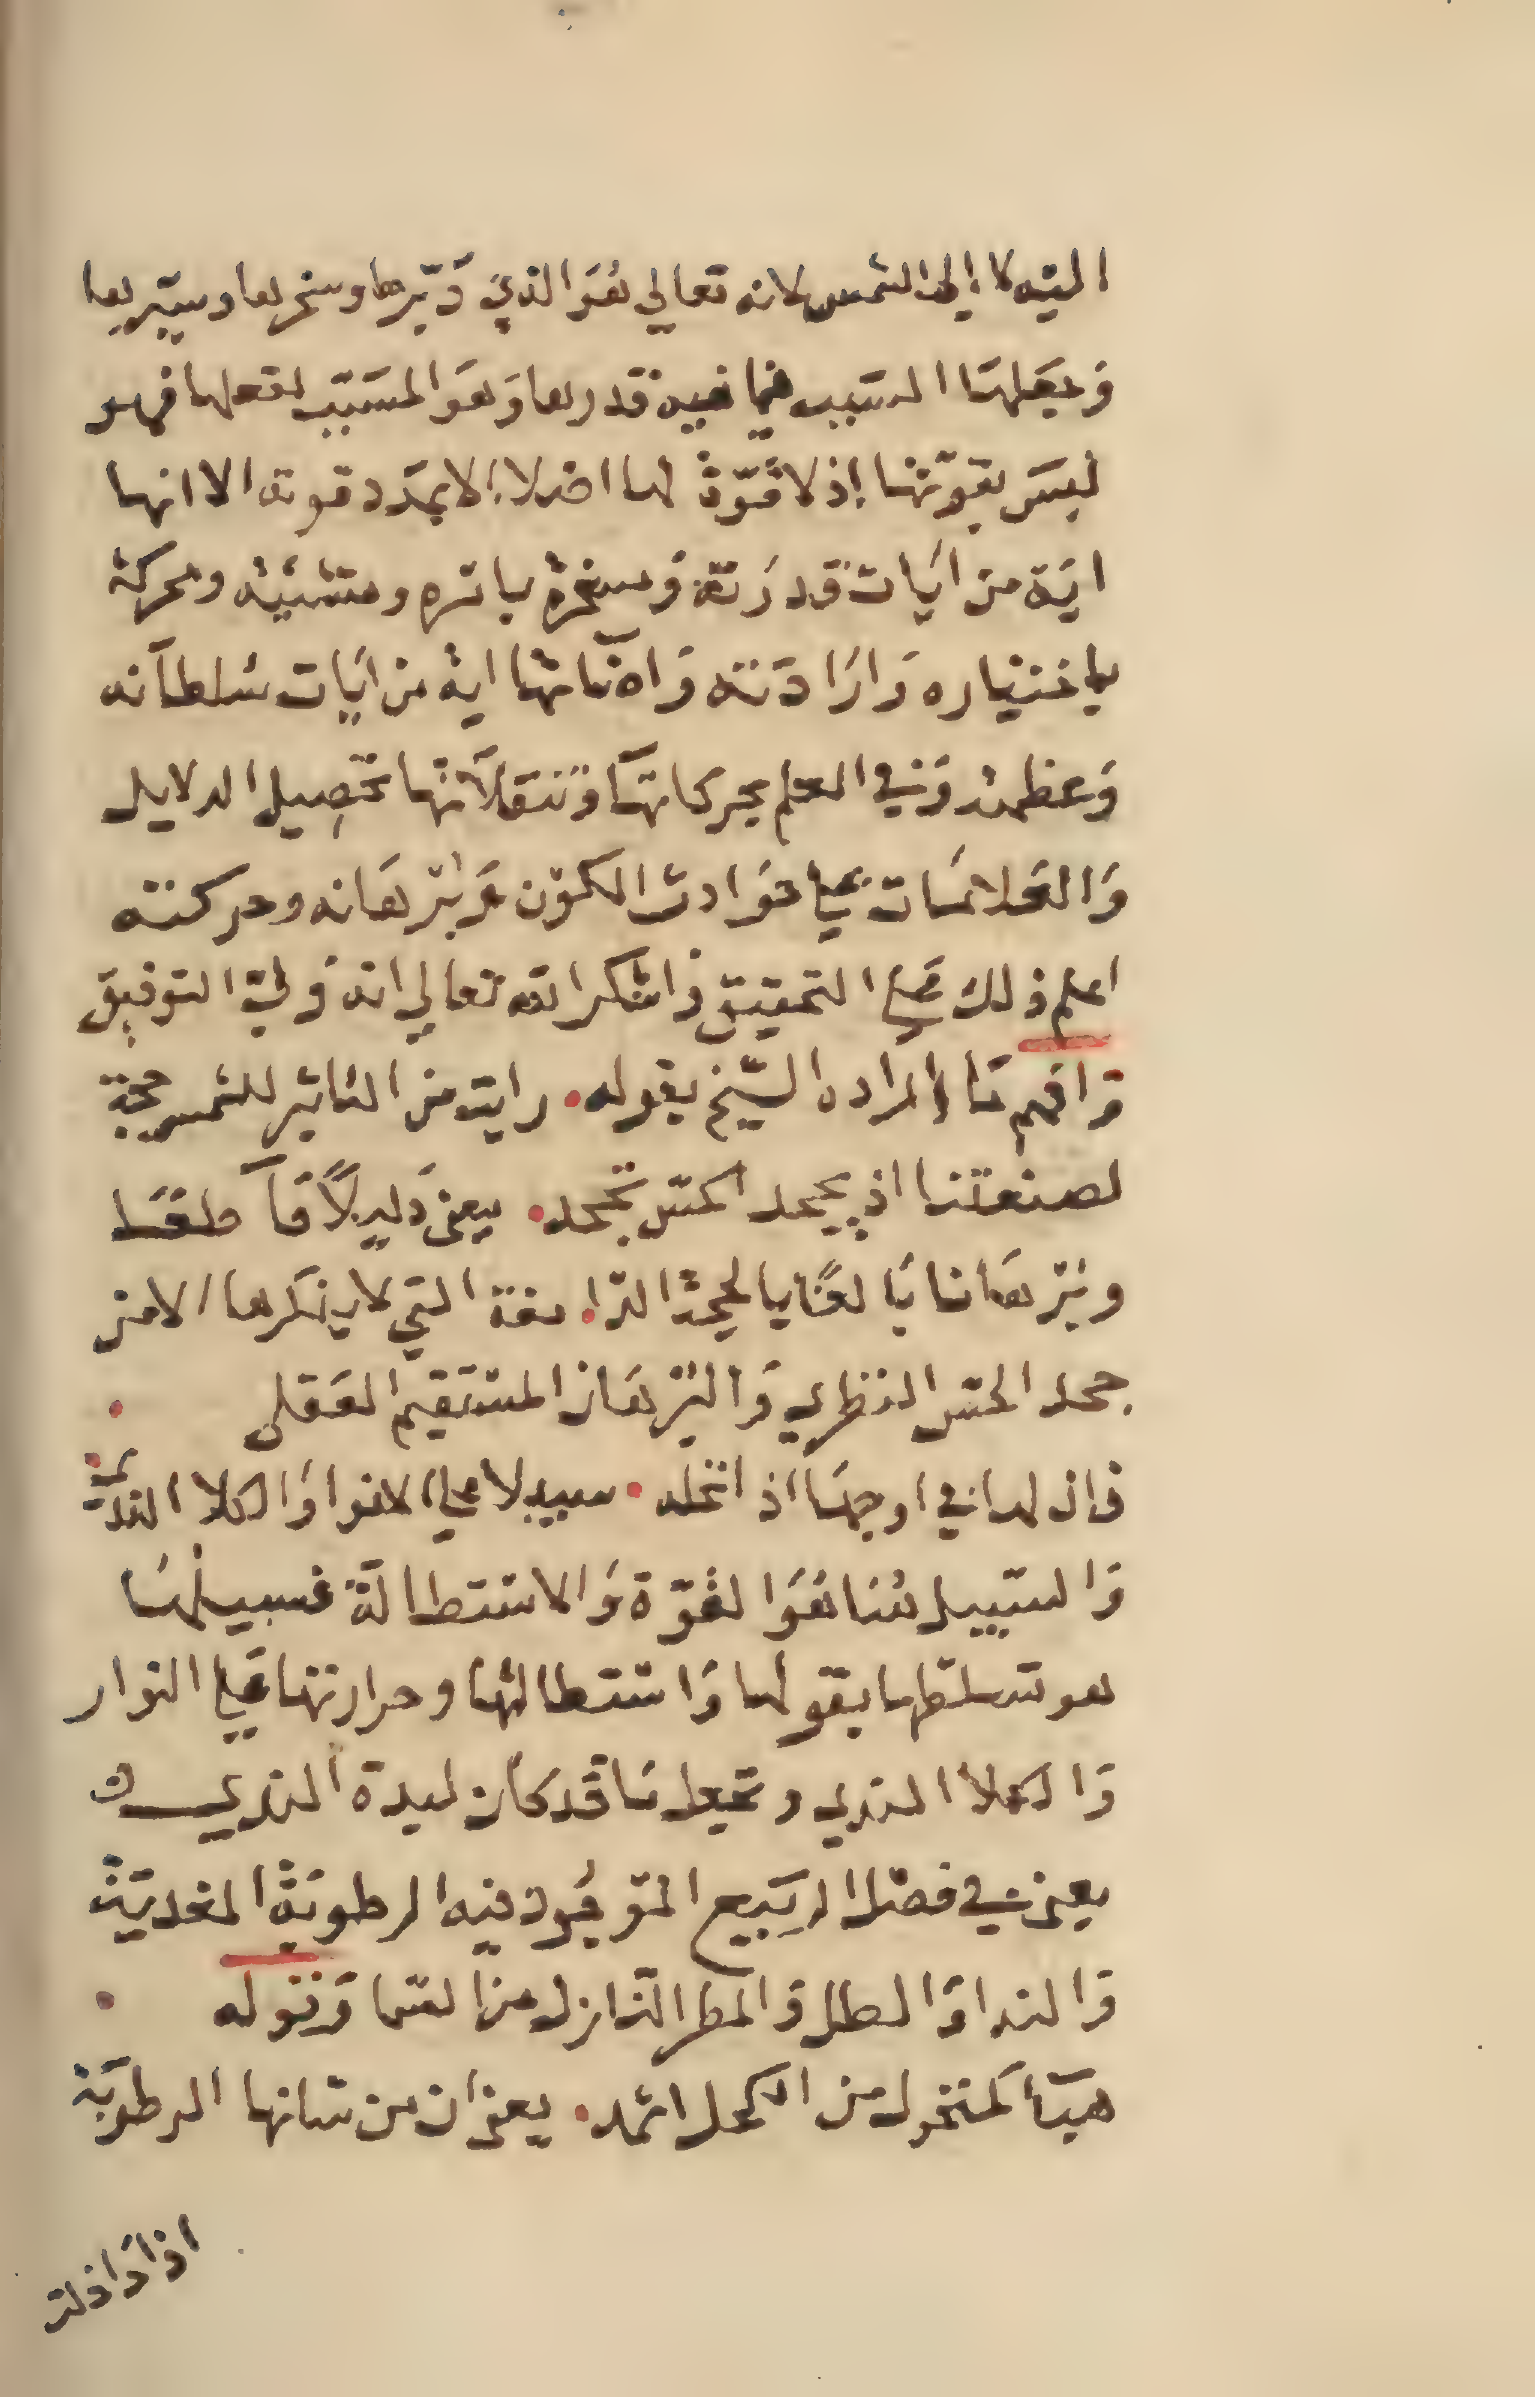 اليه لا إلى الشمس لانه تعالى هُوَ الذي دَبّرها وسخرها وسيّرها
وَجعَلهَا السَبب فيما فيه قدرها وَهوَ المسَبّب لفعلها فهو
ليسَ بقوّتها إذ لا قُوّةْ لها اصلا إلا بمدَد قوته الا انها
ايَة من ايَات قدرَته وَمسخرةْ بامره ومشيئته ومحركة
باختياره وَارَادَته وَاضآتها ايةْ من ايَات سُلطآنه
وَعظمته وَفي العلم بحركاتهَا وَتنقلآتها تحصِيل الدلايل
وَالعَلامَات على حوَادث الكوْن وَبُرهَانه وحركته
اعلم ذلك عَلى التحقيق وَاشكر الله تعالى انه وَلىّ التوفيق
وَافهم مَا المراد الشيخ بقوله • رايت من التاثير للشمس حجة
لصنعتنا اذ يجحد الحسّ تجحد • يعني دَليلاً قآطعَـا
وبُرهَانا بَالغًا بالحجة الدامغة التي لا ينكرها الا من
جحد الحسّ النظري وَالبُرهَان المستَقيم العَقلى •
فان لها في اوجهَا اذ اتحله • سبيلا على الانوا وَالكلا الندىّ
وَالسّبيل هُنا هُوَ القُوّة وَالاستطالَة فسبيلهَـا
هو تسلطها بقولها وَاستطالتها وحرارتها عَلى النوار
وَالكلا الندي وتجعل مَا قَد كان لبدة الندي ك
يعني في فصْل الرَبيع الموَجُود فيه الرطوبَةْ المغديَةْ
وَالندا وَالطل وَالمطر النّازل من السّما وَقوله •
هبَآ كمنخول من الكحل اثمد • يعني ان من شانها الرطوبَة
اذا دَاخلت